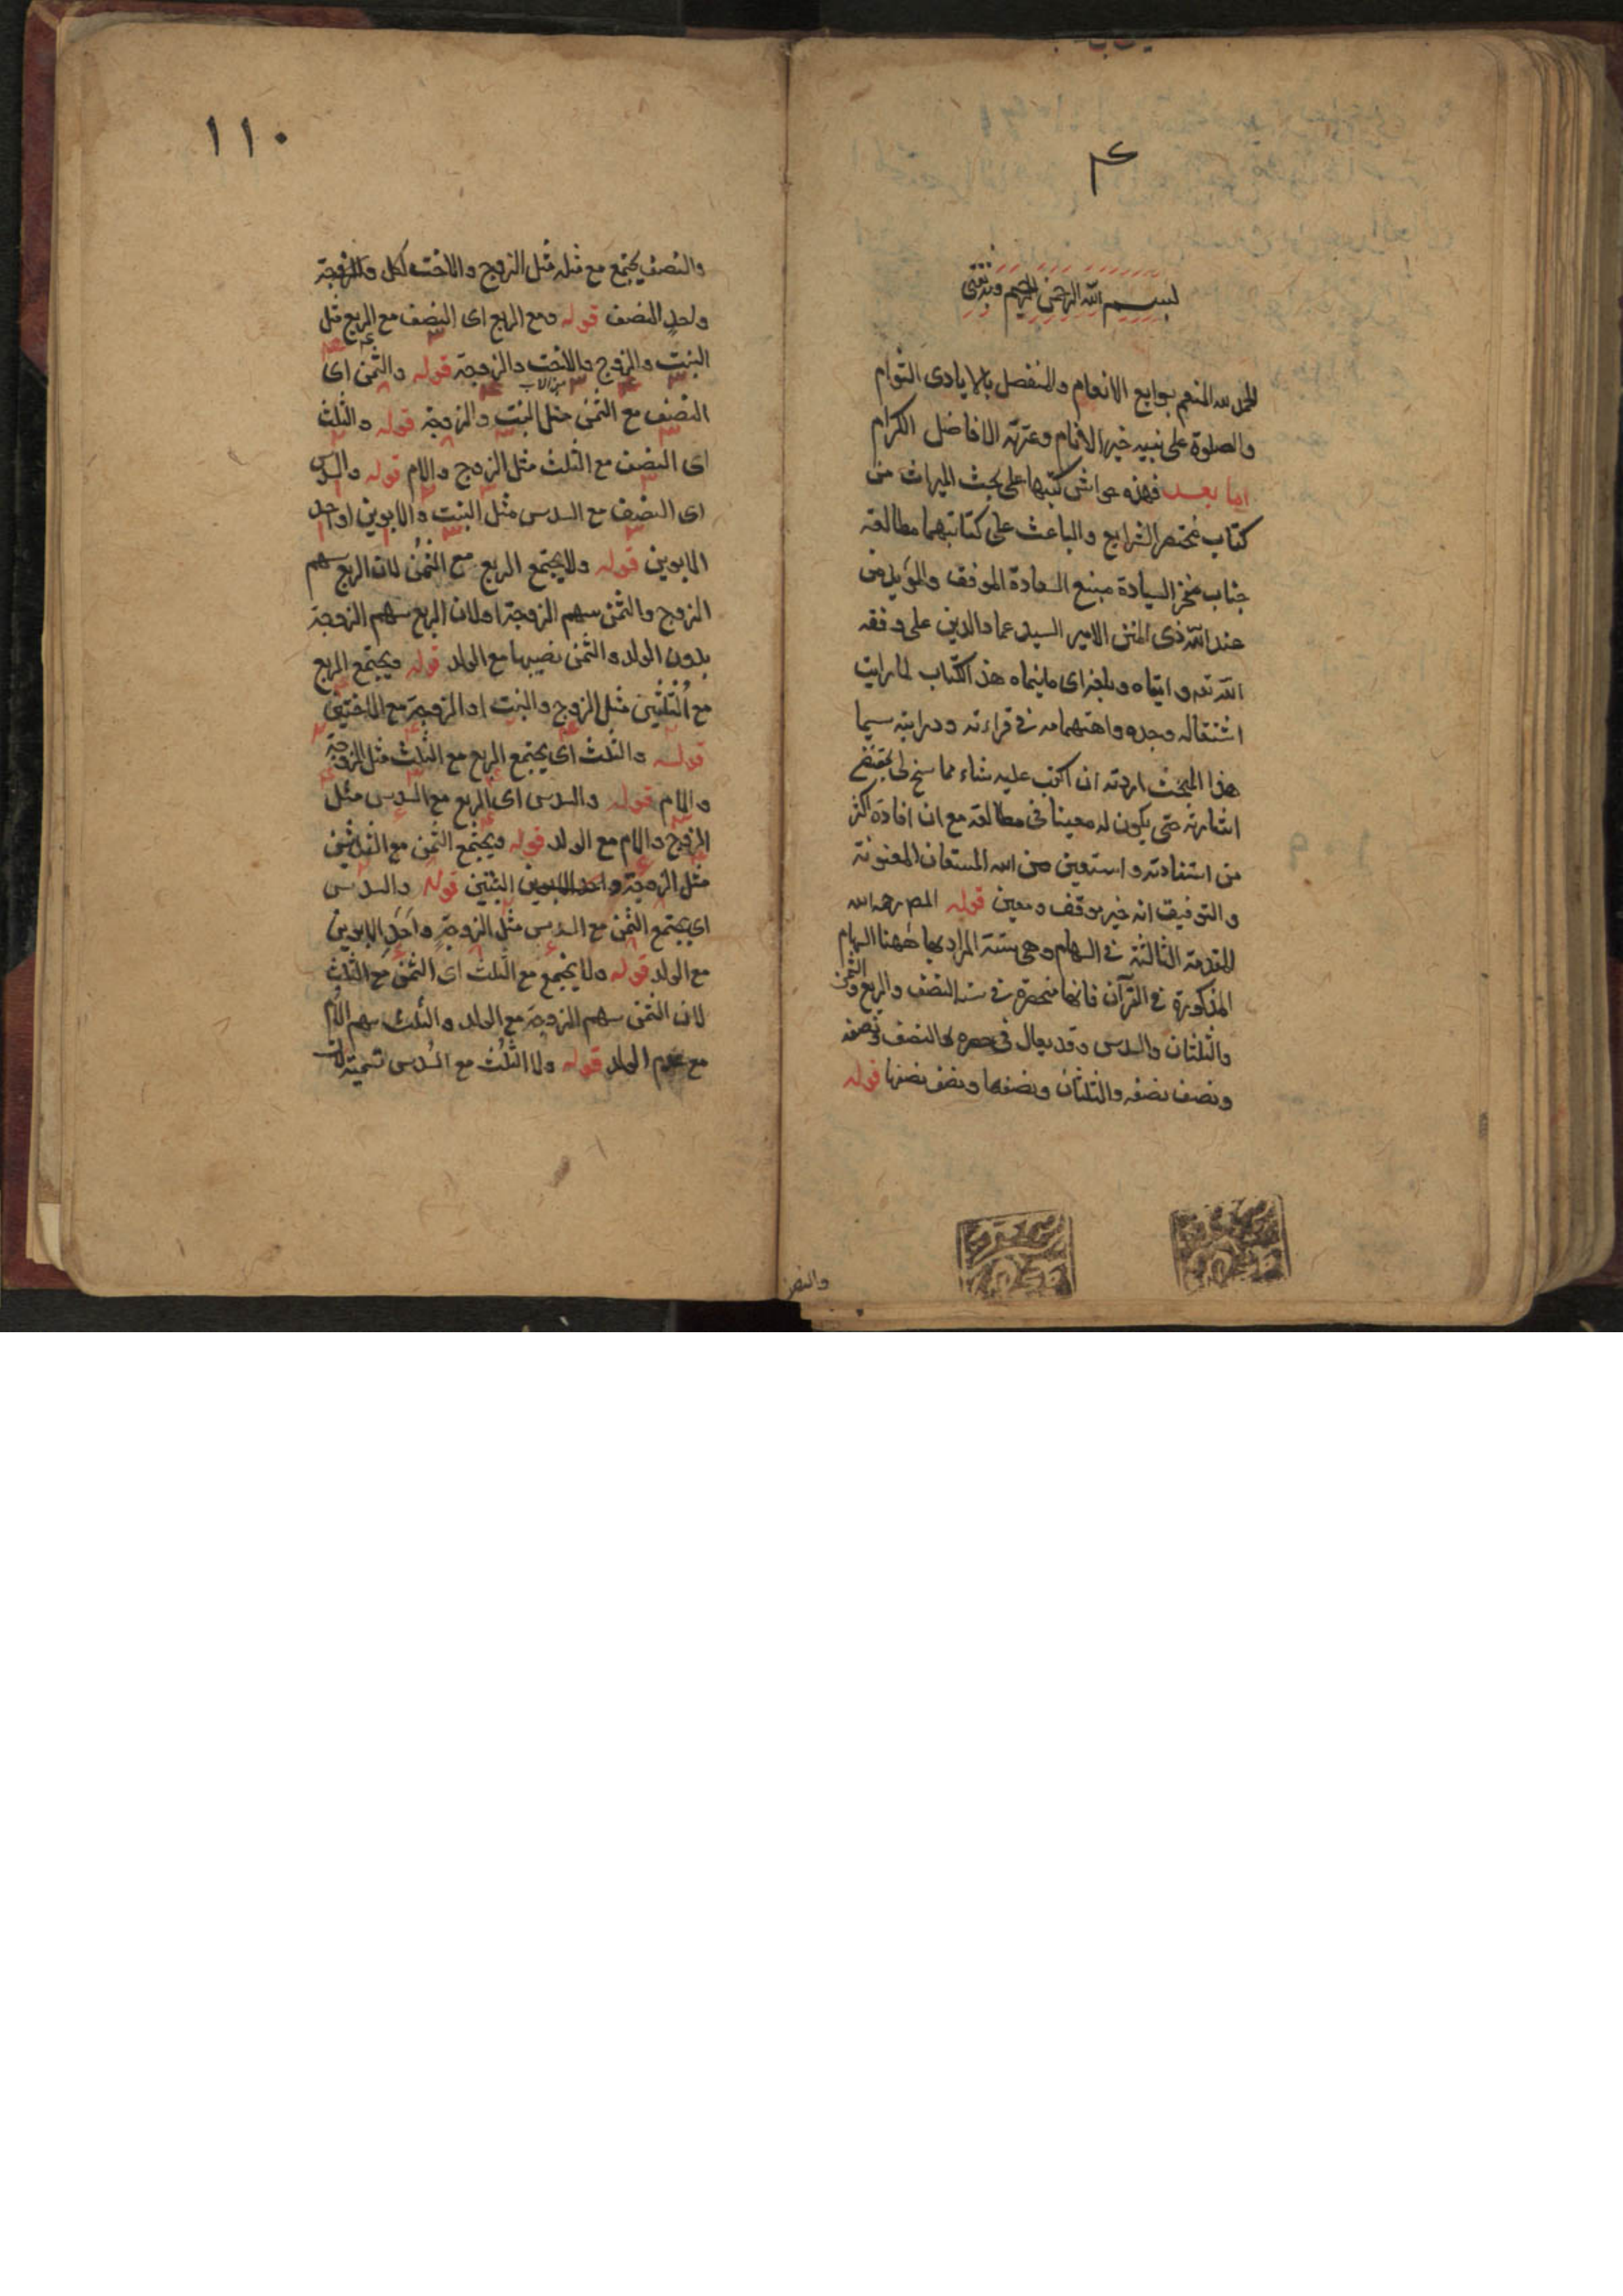 ۴
بسم الله الرحمن الرحيم وبه ثقتى
الحمد لله المنعم بوابع الانعام والمتفضل بالايادى التوام
والصلوة على نبيه خير الانام وعترته الافاضل الكرام
اما بعد فهذه حواش كتبها على بحث الميراث من
كتاب مختصر الشرايع والباعث على كتابتهما مطالعة
جناب مفخر السيادة منبع السعادة الموفق والمؤيد من
عند الله ذى المنن الامير السيد عماد الدين على وفقه
الله تعه وابقاه وبلغه اى ما يتمناه هذا الكتاب لما رايت
اشتغاله وجده واهتمامه فى قراءته ودرايته سيما
هذا المبحث اردت ان اكتب عليه شاء مما سنح لى بمقتضى
اشارته حتى يكون له معينا فى مطالعته مع ان افادة اكثر
من استفادته واستعين من الله المستعان المعونة
والتوفيق انه خير موفق ومعين قوله المص رحمه الله
المقدمة الثالثة فى السهام وهى ستة المراد بها ههنا السهام
المذكورة فى القرآن فانها منحصرة فى ست النصف والربع والثمن
والثلثان والسدس وقد يقال فى حصرها النصف ونصفه
ونصف نصفه والثلثان ونصفها ونصف نصفها قوله
والنصف
١١٠
والنصف يجتمع مع مثله مثل الزوج والاخت لكل
واحد النصف قوله ومع الربع اى النصف مع الربع مثل
البنت والزوج والاخت والزوجة قوله والثمن اى
من الاب
النصف مع الثمن مثل البنت والزوجة قوله والثلث
اى النصف مع الثلث مثل الزوج والام قوله والسدس
اى النصف مع السدس مثل البنت والابوين او احد
الابوين قوله ولا يجتمع الربع مع الثمن لان الربع سهم
الزوج والثمن سهم الزوجة او لان الربع سهم الزوجة
بدون الولد والثمن نصيبها مع الولد قوله ويجتمع الربع
مع الثلثين مثل الزوج والبنت او الزوجة مع الاختين
قوله والثلث اى يجتمع الربع مع الثلث مثل الزوجة
والام قوله والسدس اى الربع مع السدس مثل
الزوج والام مع الولد قوله ويجتمع الثمن مع الثلثين
مثل الزوجة والبنتين قوله والسدس
اى يجتمع الثمن مع السدس مثل الزوجة واحد الابوين
مع الولد قوله ولا يجتمع مع الثلث اى الثمن مع الثلث
لان الثمن سهم الزوجة مع الولد والثلث سهم الام
مع عدم الولد قوله ولا الثلث مع السدس تسمية لان